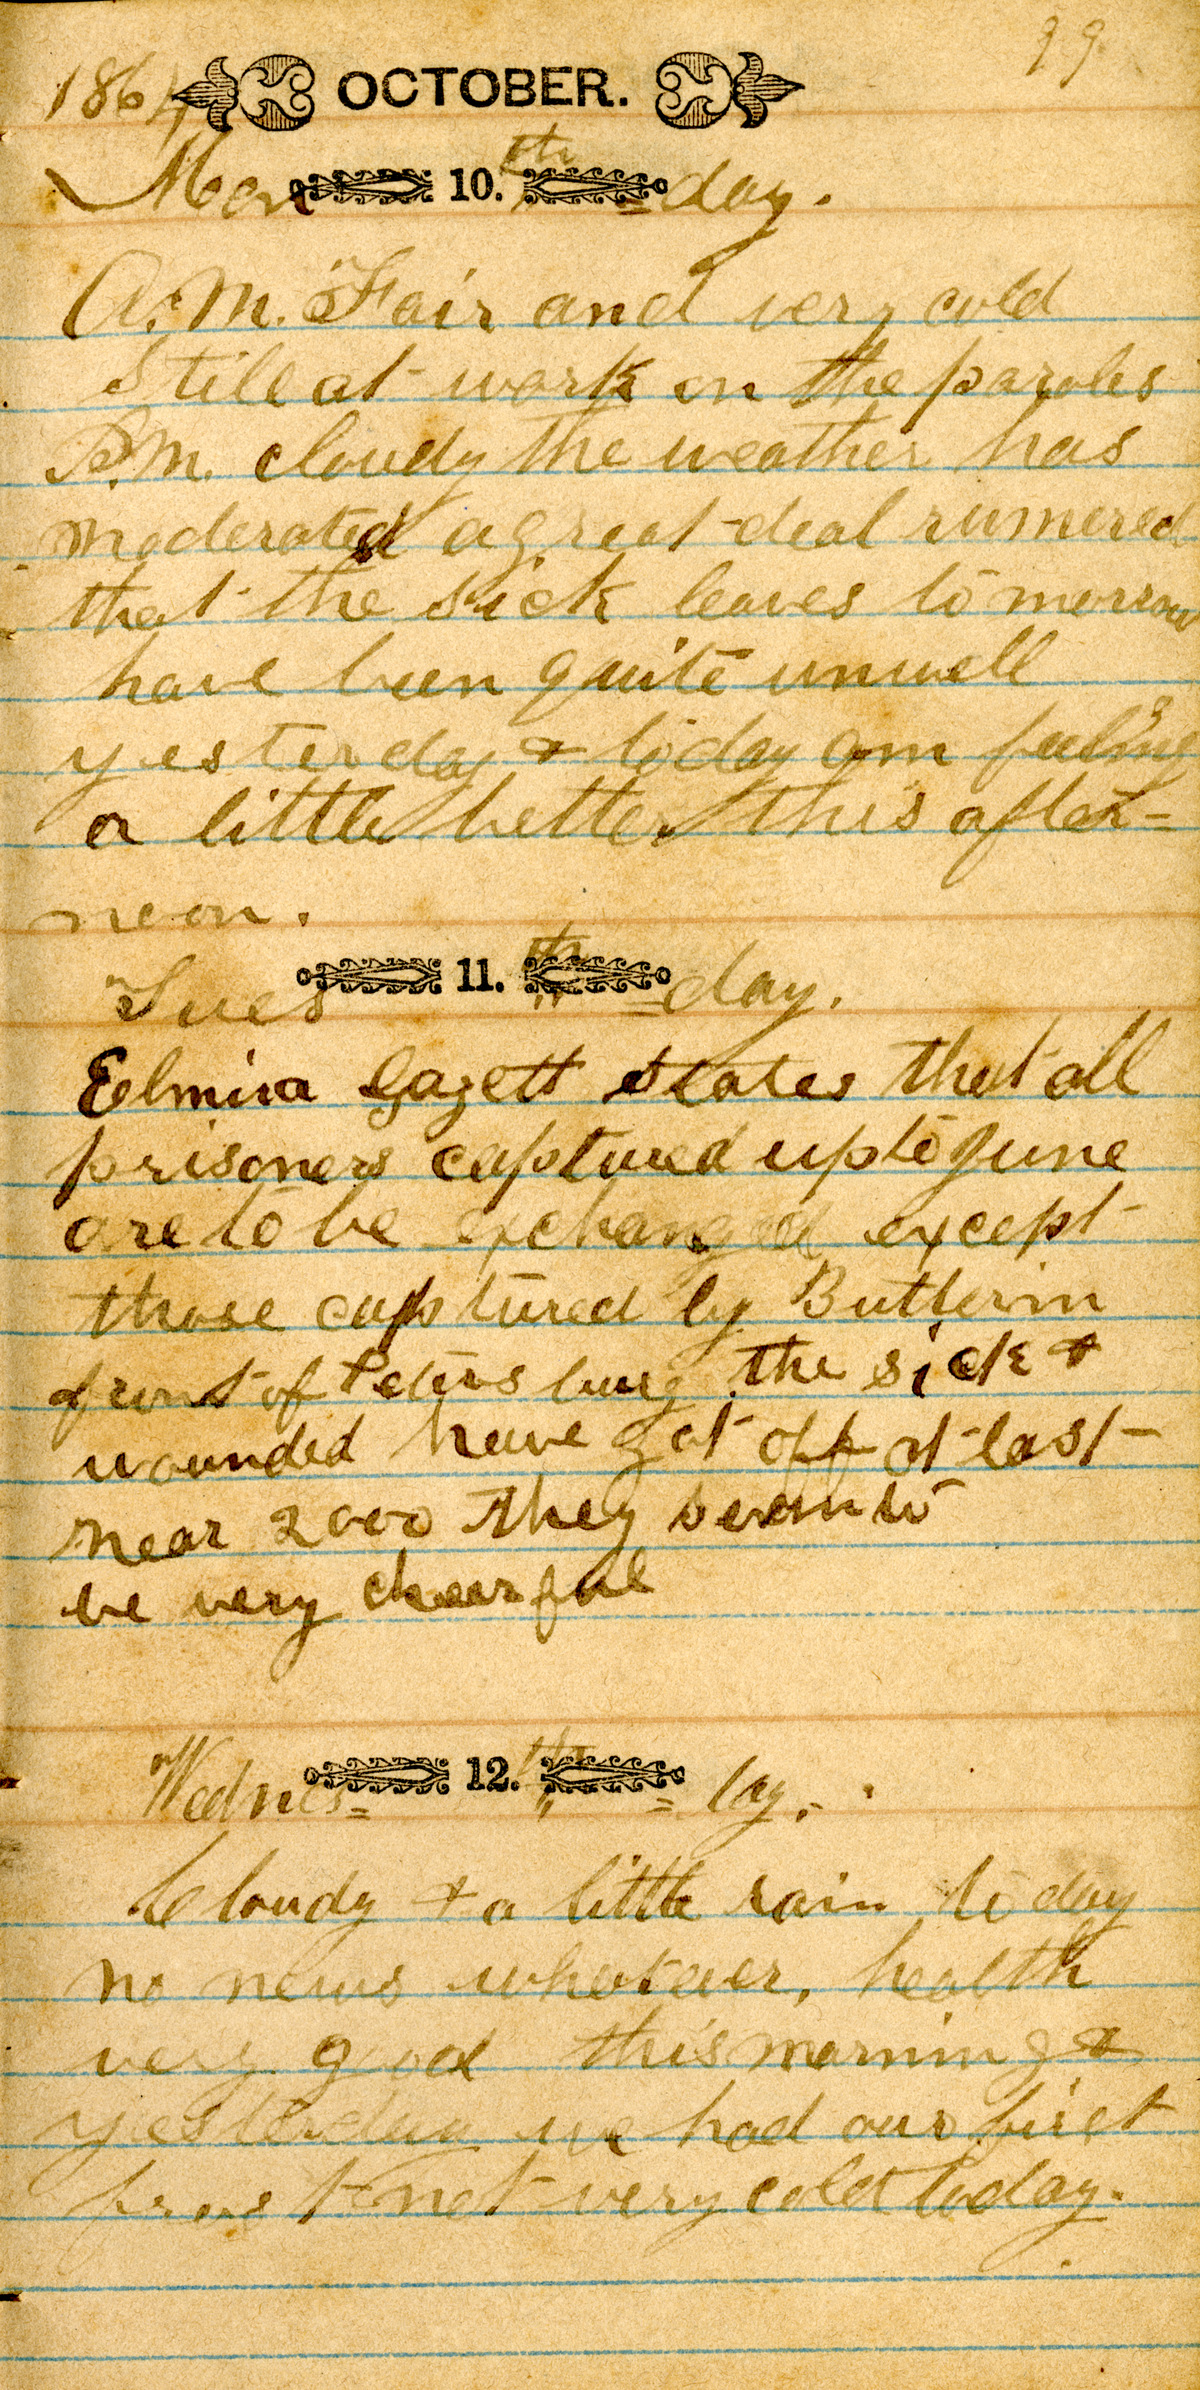 99
1864 OCTOBER.
Mon 10.th = day.
A.M. Fair and very cold
Still at work on the paroles
P.M. cloudy the weather has
moderated a great deal rumered
that the sick leaves to morrow
have been quite unwell
yesterday & to day am feeling
a little better this after-
noon.
Tues 11.th = day.
Eelmira Gazett states that all
prisoners captured up to June
are to be exchanged except
those captured by Butler in
front of Petersburg the sick &
wounded have got off at last
near 2000 they seem to
be very cheerful
Wednes= 12.th = day.
Cloudy & a little rain to day
no news whatever, health
very good this morning &
yesterday we had our first
frost not very cold today.